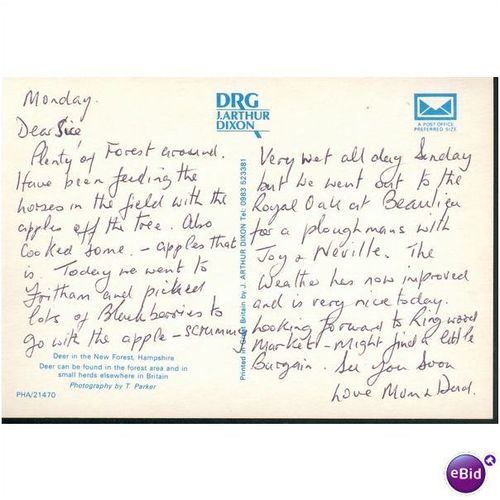 Monday.
Dear Sice
Plenty of Forest around.
Have been feeding the
horses in the field with the
apples off the tree. Also
cooked some. - apples that
is. Today we went to
Fritham and picked
lots of Blackberries to
go with the apple - scrummy
Deer in the New Forest, Hampshire
Deer can be found in the forest area and in
small herds elsewhere in Britain
Photography by T. Parker
PHA/21470
DRG
J.ARTHUR
DIXON
Printed in Great Britain by J. ARTHUR DIXON Tel: 0983 523381
A POST OFFICE
PREFERRED SIZE
Very wet all day Sunday
but we went out to the
Royal Oak at Beaulieu
for a ploughmans with
Joy & Neville. The
Weather has now improved
and is very nice today.
Looking forward to Ringwood
Market - Might find a little
Bargain. See you Soon
Love Mom & Dad.
eBid